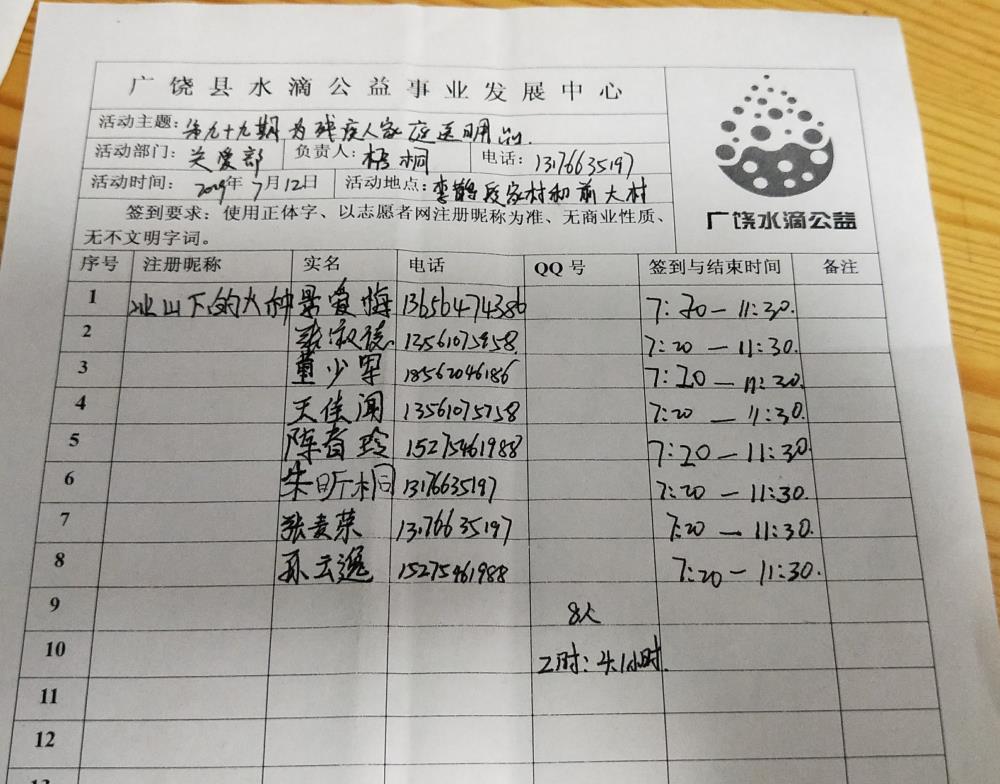 广饶县水滴公益事业发展中心
活动主题:第九十九期为残疾人家庭送日用品.
活动部门:关爱部 负责人:梧桐 电话:13176635197
活动时间:2019年7月12日 活动地点:李鹊段家村和前大村
签到要求:使用正体字、以志愿者网注册昵称为准、无商业性质、
无不文明字词。
广饶水滴公益
序号 注册昵称 实名 电话 QQ号 签到与结束时间 备注
1 冰山下的火种 景爱梅 13656474386 7:20-11:30.
2 张淑德 7:20-11:30.
3 董少军 18562046186 7:20-11:30
4 天佳闻 13561075758 7:20-11:30.
5 陈春玲 15275461988 7:20-11:30
6 朱昕桐 13176635197 7:20-11:30.
7 张麦荣 13176635197 7:20-11:30.
8 孙云逸 15275461988 7:20-11:30.
9 8人
10 工时:4.1小时.
11
12
13